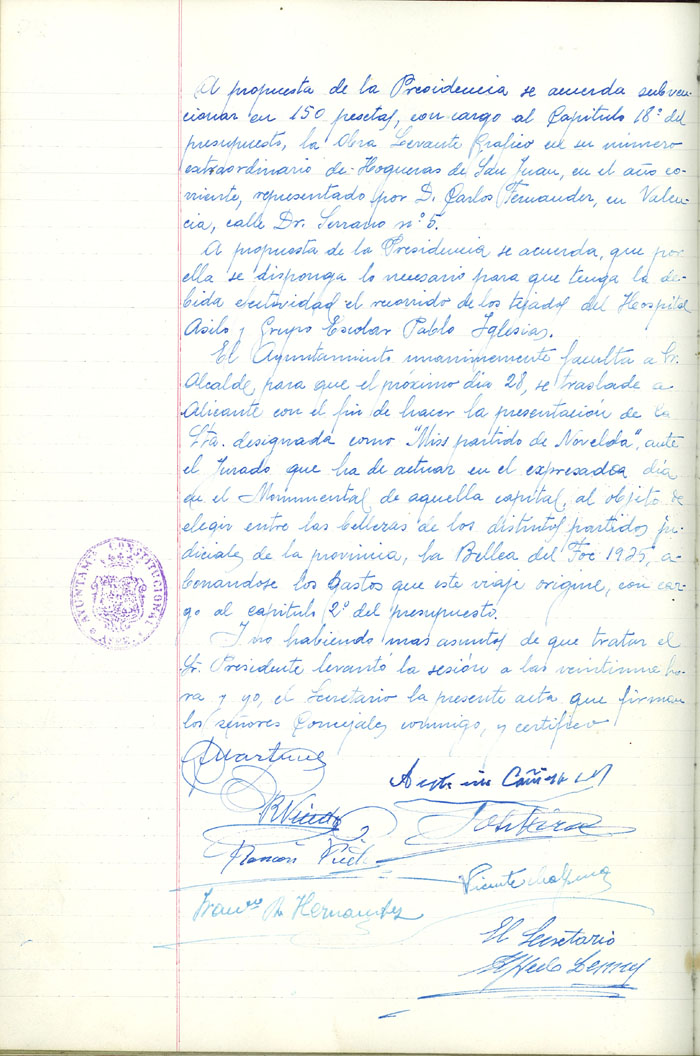 A propuesta de la Presidencia se acuerda subven-
cionar en 150 pesetas, con cargo al Capítulo 18º del
presupuesto, la Obra Levante Gráfico en su número
extraordinario de Hogueras de San Juan, en el año co-
rriente, representado por D. Carlos Fernandez, en Valen-
cia, calle Dr. Serrano nº 5.
A propuesta de la Presidencia se acuerda, que por
ella se disponga lo necesario para que tenga la de-
bida efectividad el recorrido de los tejados del Hospital
Asilo y Grupo Escolar Pablo Iglesias.
El Ayuntamiento unanimemente faculta a Sr.
Alcalde para que el próximo dia 28, se traslade a
Alicante con el fin de hacer la presentación de la
Srta. designada como "Miss partido de Novelda", ante
el Jurado que ha de actuar en el expresado día
en el Monumental de aquella capital, al objeto de
elegir entre las bellezas de los distintos partidos ju-
diciales de la provincia, la Bellea del Foc 1935, a-
bonandose los Gastos que este viaje origine, con car-
go al capitulo 2º del presupuesto.
Y no habiendo mas asuntos de que tratar el
Sr. Presidente levantó la sesión a las veintiuna ho-
ra y yo, el Secretario la presente acta, que firman
los señores Concejales conmigo, y certifico
AYUNTAMTO CONSTITUCIONAL
Martinez
R Vicedo
Ramón
Vicente
Franco Hernandez
El Secretario
Alfredo